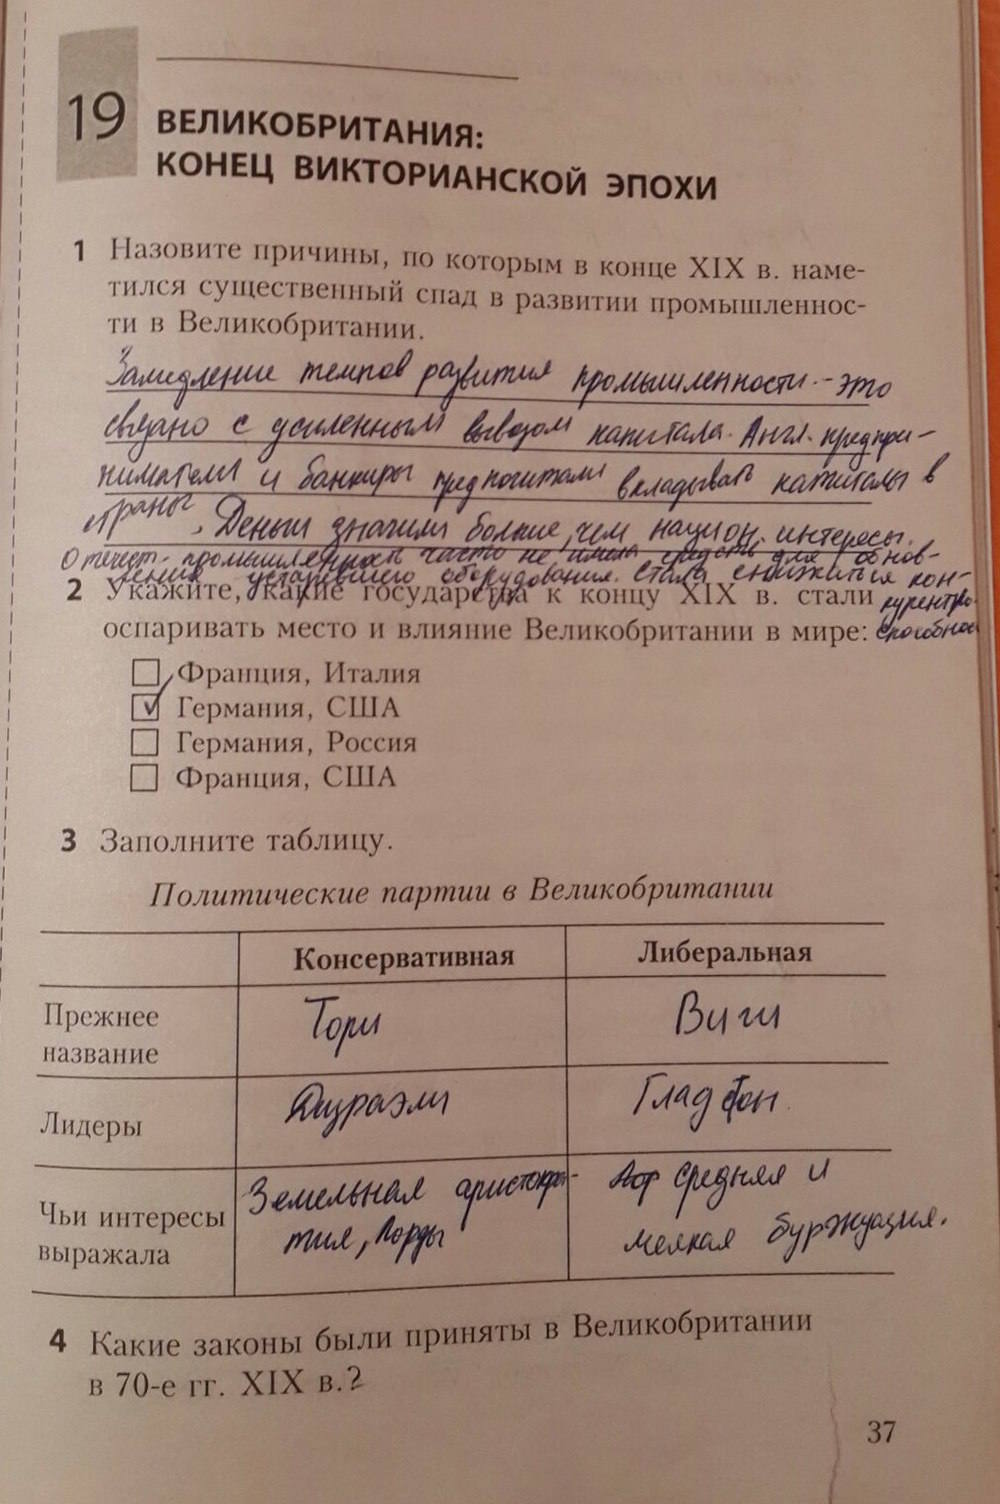 19
ВЕЛИКОБРИТАНИЯ:
КОНЕЦ ВИКТОРИАНСКОЙ ЭПОХИ
1 Назовите причины, по которым в конце XIX в. наме-
тился существенный спад в развитии промышленнос-
ти в Великобритании.
Замедление темпов развития промышленности - это
связано с усиленным вывозом капитала. Англ. предпри-
ниматели и банкиры предпочитали вкладывать капиталы в
страны. Деньги значили больше, чем национ. интересы.
Отечест. промышленность часто не имела средств для обнов-
ления устаревшего оборудования. Стала снижаться кон-
2 Укажите, какие государства к концу XIX в. стали курентно-
оспаривать место и влияние Великобритании в мире: способнос
Франция, Италия
✓ Германия, США
Германия, Россия
Франция, США
3 Заполните таблицу.
Политические партии в Великобритании
Консервативная Либеральная
Прежнее название Тори Виги
Лидеры Дизраэли Гладстон
Чьи интересы выражала Земельная аристокра- средняя и
тия, лорды мелкая буржуация.
4 Какие законы были приняты в Великобритании
в 70-е гг. XIX в.?
37